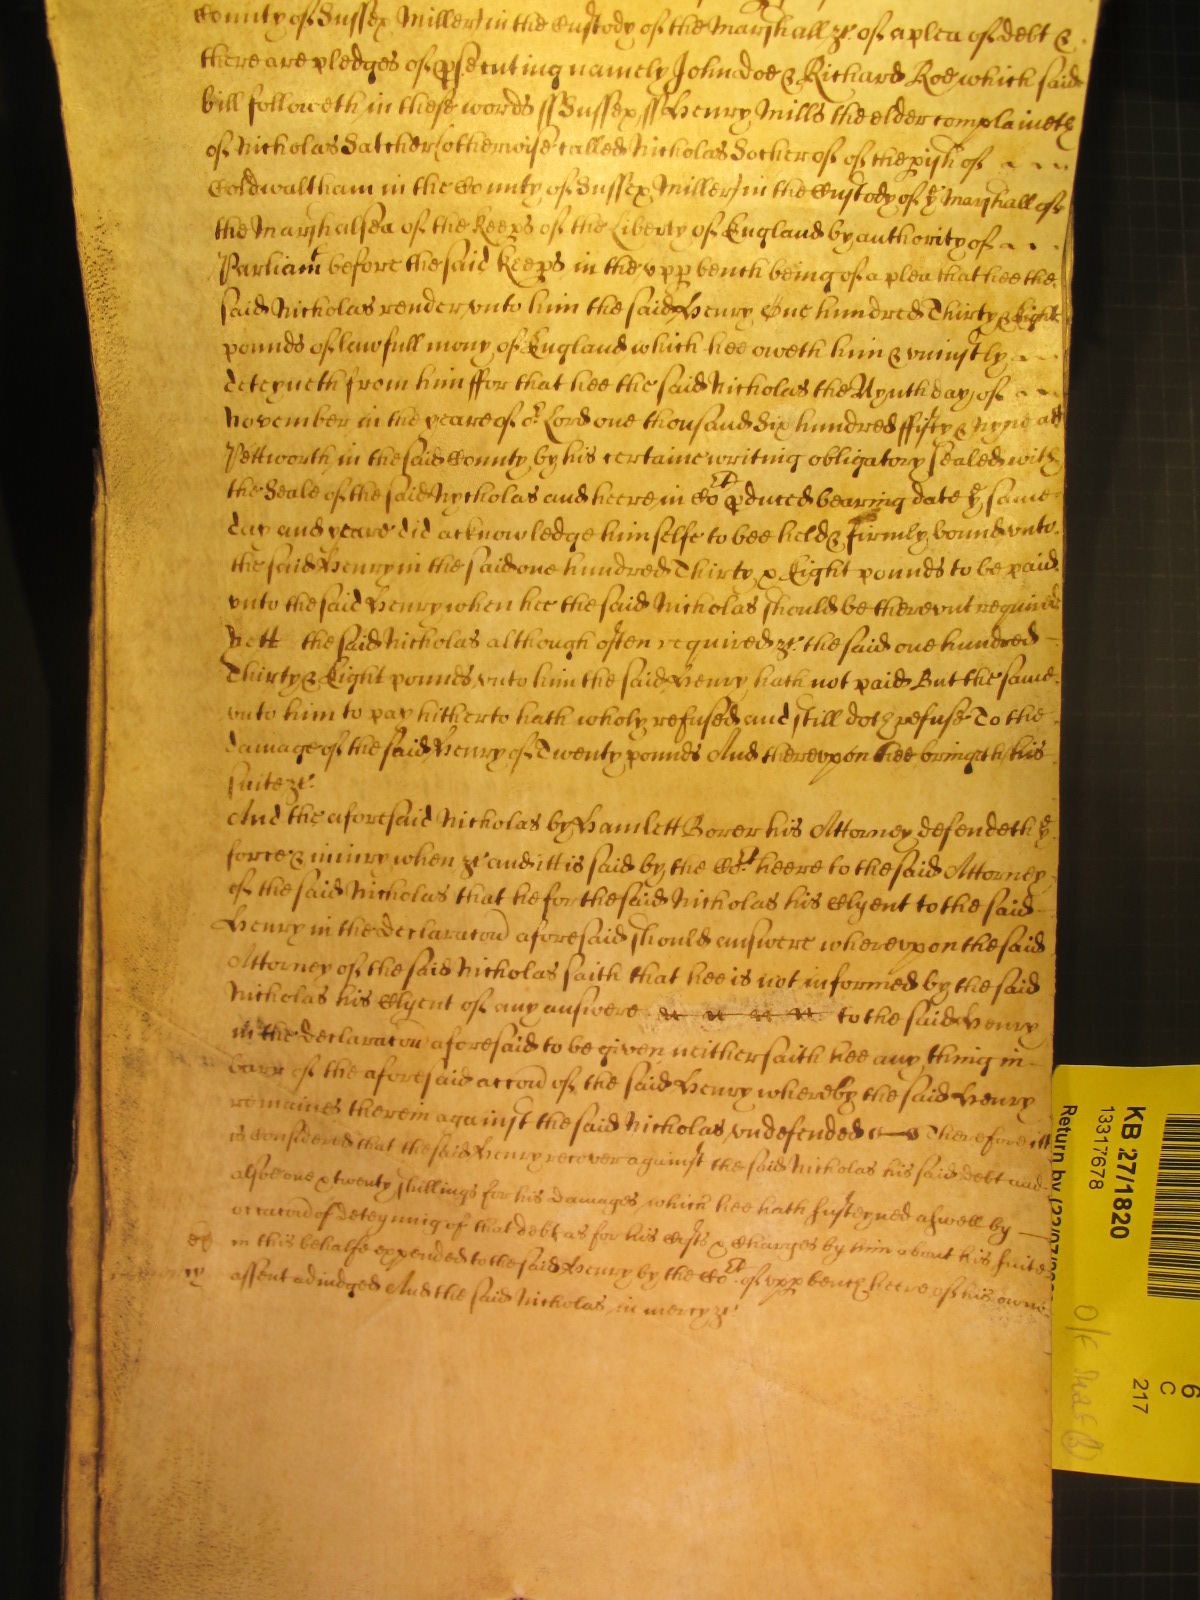 County of Sussex Miller) in the Custody of the Marshall &c of a plea of debt &
there are pledges of psecuting namely John doe & Richard Roe which said
bill followeth in these words ss Sussex ss Henry Mills the elder complaineth
of Nicholas Satcher (otherwise called Nicholas Socher of of the pish of
Coldwaltham in the County of Sussex Miller) in the Custody of ye Marshall of
the Marshalsea of the Keeps of the Liberty of England by authority of
Parliamt before the said Keeps in the vpp bench being of a plea that hee the
said Nicholas render vnto him the said Henry One hundred Thirty & Eight
pounds of lawfull mony of England which hee oweth him & vniustly
deteyneth from him ffor that hee the said Nicholas the Nynth day of
November in the yeare of or Lord one thousand Six hundred ffifty & nyne att
Pettworth in the said County by his certaine writing obligatory sealed with
the Seale of the said Nycholas and heere in Cort pduced bearing date ye same
day and yeare did acknowledge himselfe to bee held & firmly bound vnto
the said Henry in the said one hundred Thirty & Eight pounds to be paid
vnto the said Henry when hee the said Nicholas should be therevnt required
Yett the said Nicholas although often required &c the said one hundred
Thirty & Eight pounds vnto him the said Henry hath not paid But the same
vnto him to pay hitherto hath wholy refused and still doth refuse To the
damage of the said Henry of Twenty pounds And therevpon hee bringeth his
suite &c
And the aforesaid Nicholas by Hamlett Borer his Attorney defendeth ye
force & iniury when &c and itt is said by the Cort heere to the said Attorney
of the said Nicholas that he for the said Nicholas his Clyent to the said
Henry in the declaracon aforesaid should answere wherevpon the said
Attorney of the said Nicholas saith that hee is not informed by the said
Nicholas his Clyent of any answere to the said Henry
in the declaracon aforesaid to be given neither saith hee any thing in
barr of the aforesaid accon of the said Henry whereby the said Henry
remaines therein against the said Nicholas vndefended Therefore itt
is Considered that the said Henry recover against the said Nicholas his said debt and
alsoe one & twenty shillings for his damages which hee hath susteyned aswell by
occacon of deteyning of that debt as for his Costs & Charges by him about his suite
in this behalfe expended to the said Henry by the Cort of vpp bench heere of his owne
assent adiudged And the said Nicholas in mercy &c
KB 27/1820
13317678
Return by
6
C
217